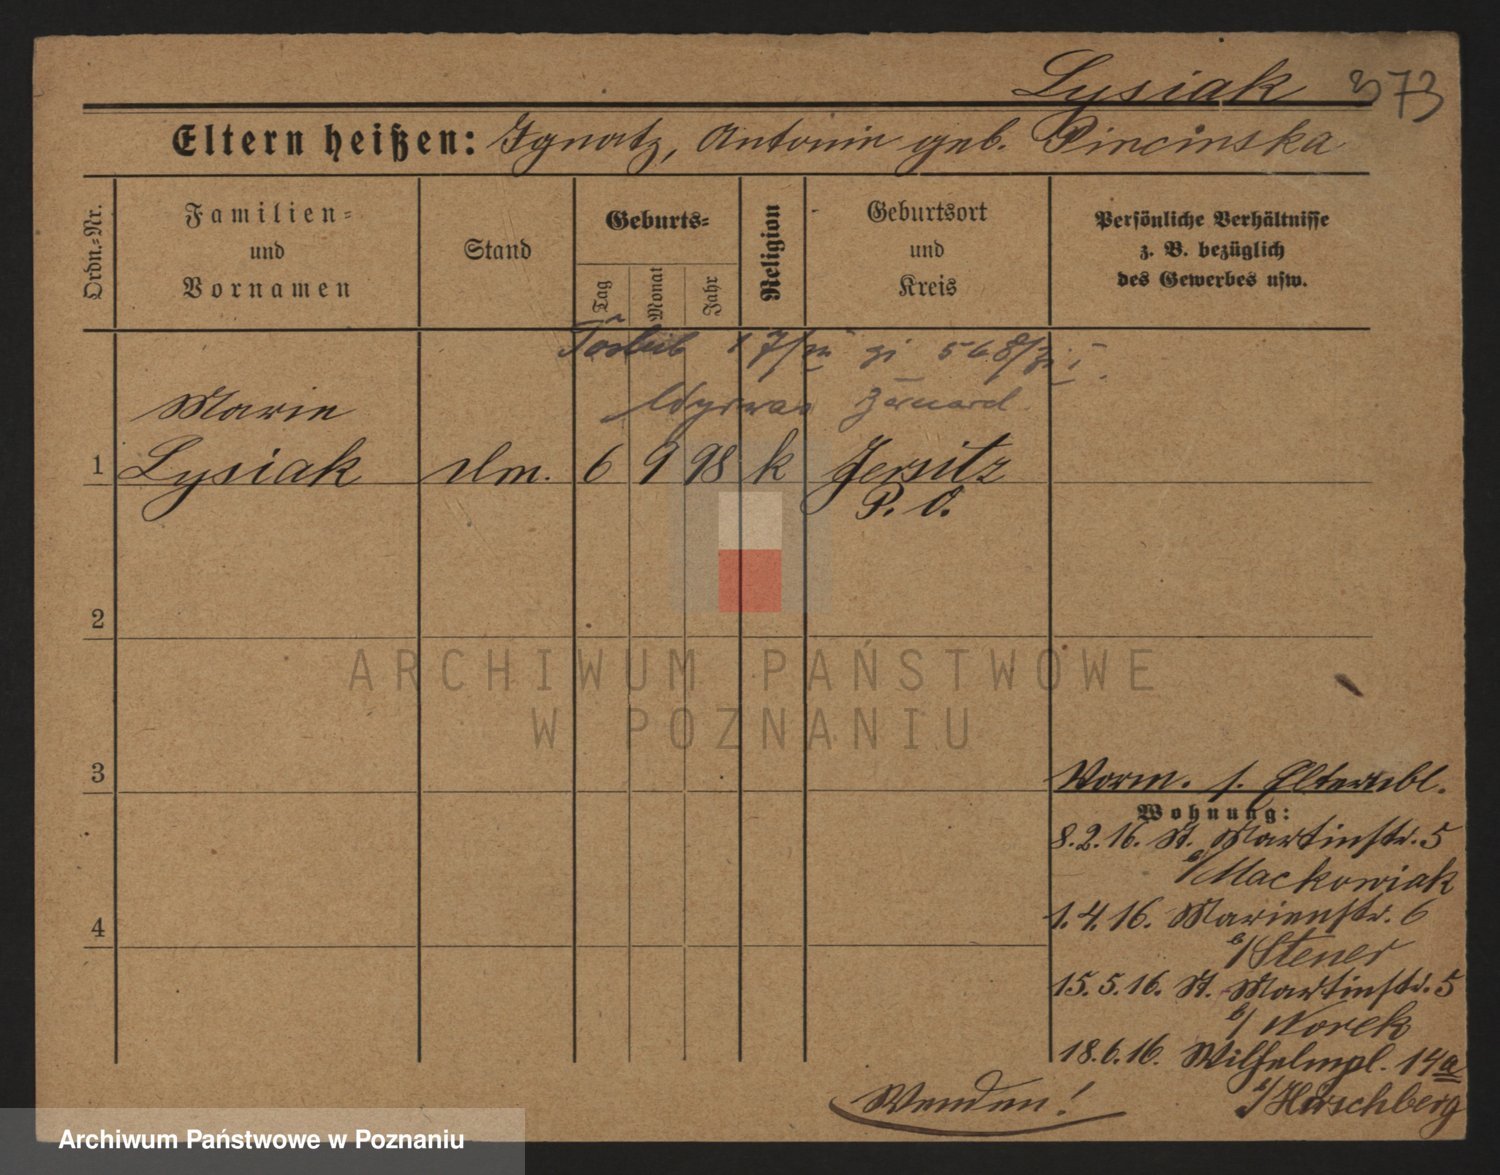 Lysiak 373
Eltern heißen: Ignatz, Antonie geb. Pincinska
Ordn.-Nr.
Familien-
und
Vornamen
Stand
Geburts-
Tag
Monat
Jahr
Religion
Geburtsort
und
Kreis
Persönliche Verhältnisse
z. B. bezüglich
des Gewerbes usw.
17/
Marie
1 Lysiak dm. 6 9 98 k Jersitz
P. O.
2
3
4
Vorm. s. Elternbl.
Wohnung:
8.2.16. St. Martinstr. 5
b/ Mackowiak
1.4.16. Marienstr. 6
b/ Stener
15.5.16. St. Martinstr. 5
b/ Norek
18.6.16. Wilhelmpl. 14a
b/ Hirschberg
Wenden!
ARCHIWUM PAŃSTWOWE
W POZNANIU
Archiwum Państwowe w Poznaniu